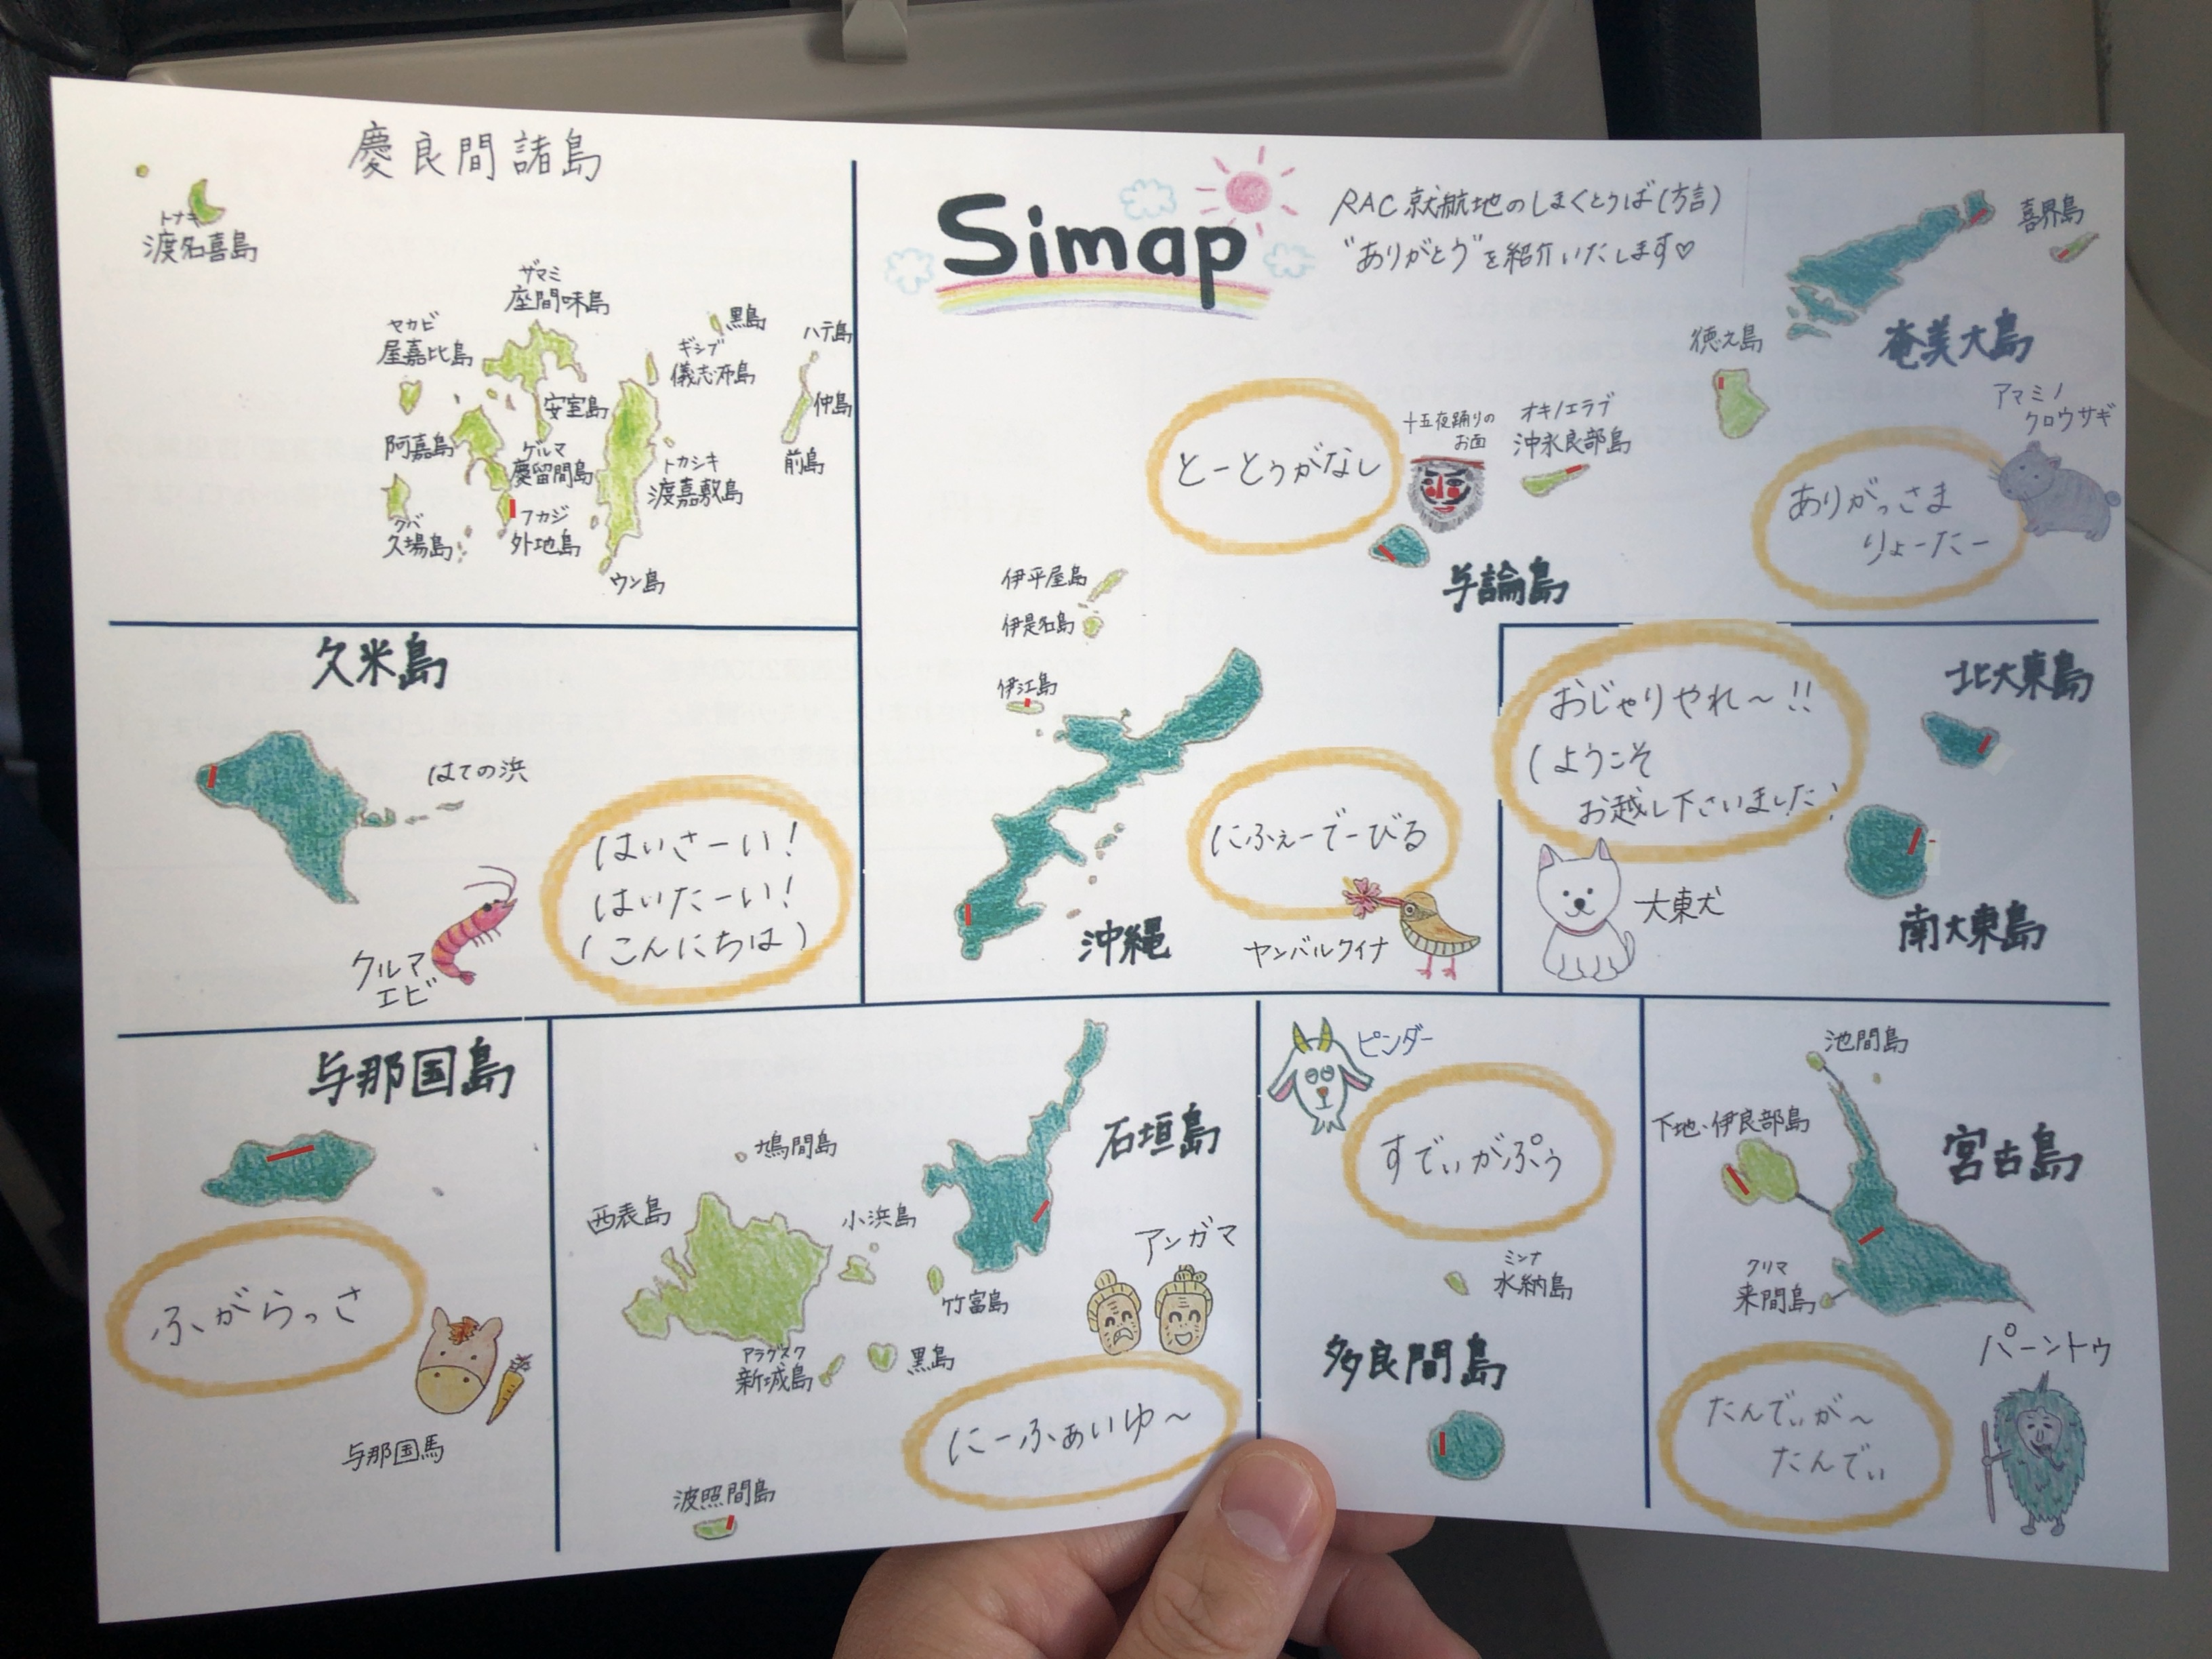 慶良間諸島
トナキ
渡名喜島
ザマミ
座間味島
ヤカビ
屋嘉比島
黒島
ギシブ
儀志布島
ハテ島
仲島
前島
安室島
阿嘉島
ゲルマ
慶留間島
トカシキ
渡嘉敷島
クバ
久場島
フカジ
外地島
ウン島
Simap
RAC就航地のしまくとぅば(方言)
"ありがとう"を紹介いたします♡
喜界島
奄美大島
徳之島
アマミノ
クロウサギ
ありがっさま
りょーたー
とーとぅがなし
十五夜踊りの
お面
オキノエラブ
沖永良部島
与論島
伊平屋島
伊是名島
伊江島
にふぇーでーびる
沖縄
ヤンバルクイナ
おじゃりやれ〜!!
(ようこそ
お越し下さいました)
北大東島
大東犬
南大東島
久米島
はての浜
はいさーい!
はいたーい!
(こんにちは)
クルマ
エビ
与那国島
ふがらっさ
与那国馬
石垣島
鳩間島
西表島
小浜島
竹富島
アンガマ
アラグスク
新城島
黒島
にーふぁいゆ〜
波照間島
ピンダー
すでぃがぷう
ミンナ
水納島
多良間島
池間島
下地・伊良部島
宮古島
クリマ
来間島
パーントゥ
たんでぃが〜
たんでぃ